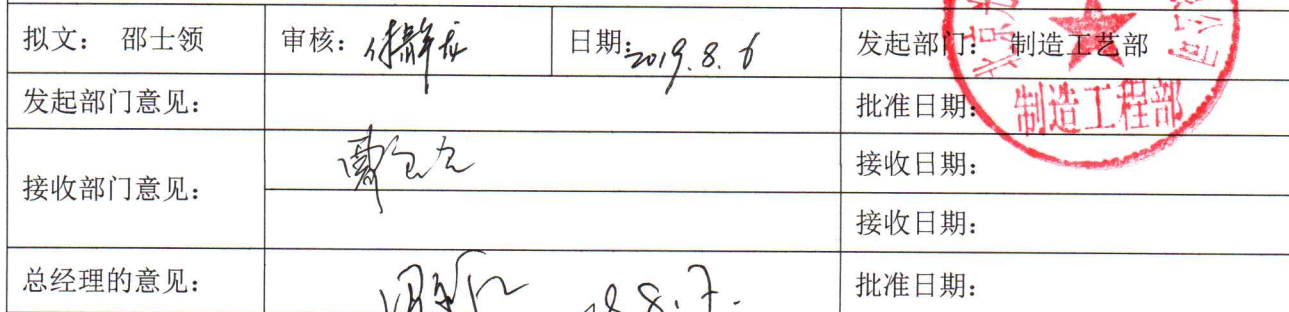 拟文: 邵士领 审核: 日期: 2019.8.6 发起部门: 制造工艺部
发起部门意见: 批准日期:
制造工程部
接收部门意见: 接收日期:
接收日期:
总经理的意见: 8.7. 批准日期: